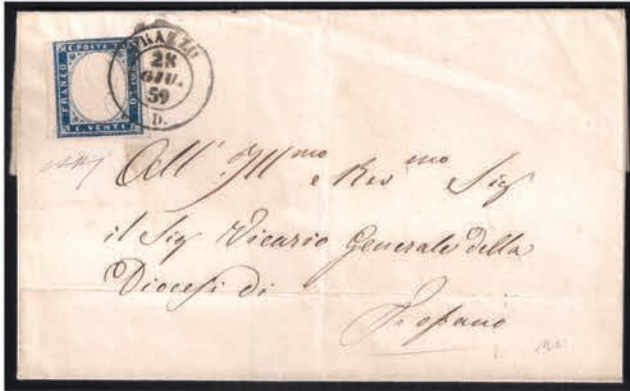 C. POSTE
FRANCO
C. VENTI
28
GIU.
59
D.
All' Ill^mo e Rev^mo Sig
il Sig Vicario Generale della
Diocesi di
Fossano